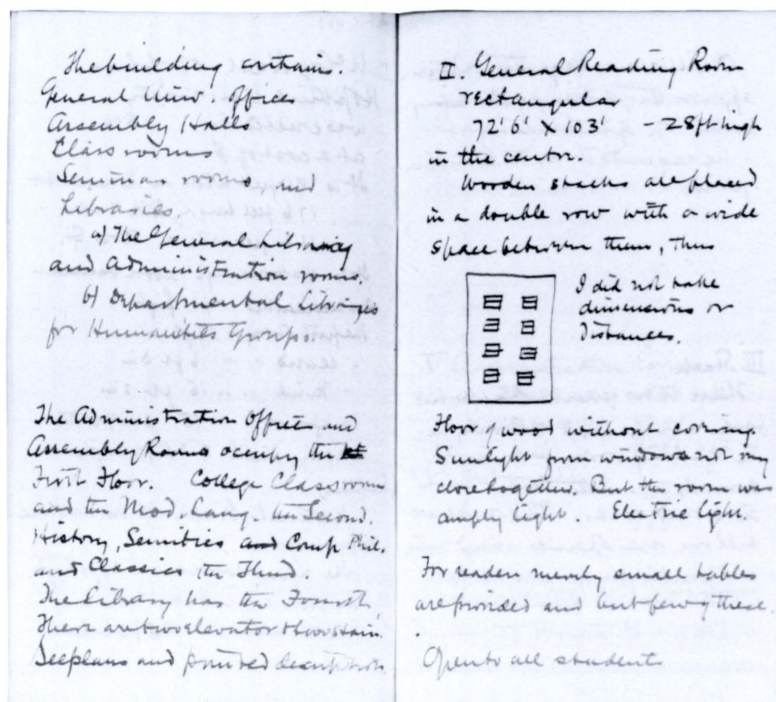 The building contains.
General Univ offices
Assembly Halls
Class rooms
Seminar rooms and
Libraries.
a) The General Library
and Administration rooms.
b) Departmental Libraries
for Humanities Groups.
The Administration Offices and
Assembly Rooms occupy the
First Floor. College Classrooms
and the Mod. Lang. the Second.
History, Semitics and Comp Phil.
and Classics the Third.
The Library has the Fourth
There are two elevators
See plans and printed description
II General Reading Room
rectangular
72' 6' X 103' – 28ft high
in the center.
Wooden stacks are placed
in a double row with a wide
space between them, thus
I did not take
dimensions or
distances.
Floor of wood without covering
Sunlight from windows not very
close together. But the room was
amply light. Electric light.
For readers merely small tables
are provided and but few of these.
Open to all students